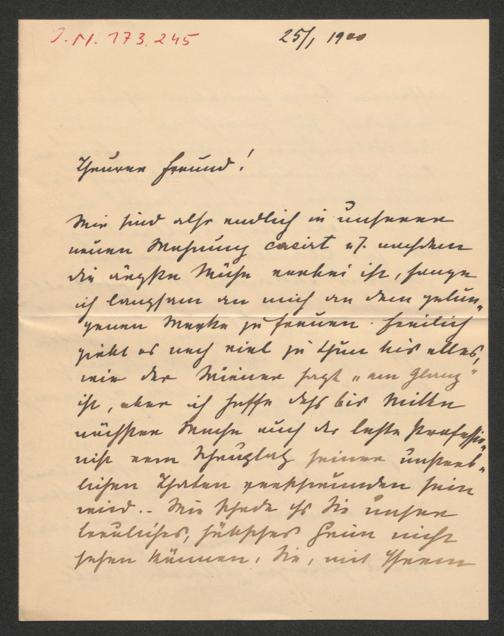 J. N. 173.245
25/1 1900
Theurer Freund!
Wir sind also endlich in unserer
neuen Wohnung casirt u. nachdem
die ärgste Mühe vorbei ist, fange
ich langsam an mich an dem gelun-
genen Werke zu freuen. Freilich
giebt es noch viel zu thun bis alles,
wie der Wiener sagt „am Glanz"
ist, aber ich hoffe dass bis Mitte
nächster Woche auch der letzte Professio-
nist vom Schauplatz seiner unsterb-
lichen Thaten verschwunden sein
wird. - Wie schade dass Sie unser
trauliches, hübsches Heim nicht
sehen können, Sie, mit Ihrem